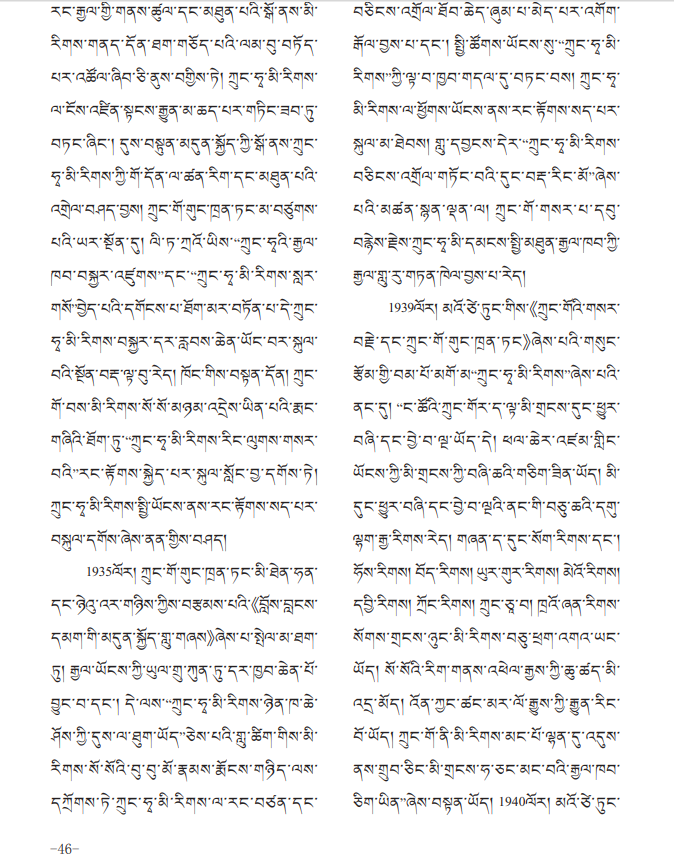 རང་རྒྱལ་གྱི་གནས་ཚུལ་དང་མཐུན་པའི་སྒོ་ནས་མི་
རིགས་གནད་དོན་ཐག་གཅོད་པའི་ལམ་བུ་བཏོད་
པར་འཚོལ་ཞིབ་ཅི་ནུས་བགྱིས་ཏེ། ཀྲུང་ཧྭ་མི་རིགས་
ལ་ངོས་འཛིན་སྟངས་རྒྱུན་མ་ཆད་པར་གཏིང་ཟབ་ཏུ་
བཏང་ཞིང་། དུས་བསྟུན་མདུན་སྐྱོད་ཀྱི་སྒོ་ནས་ཀྲུང་
ཧྭ་མི་རིགས་ཀྱི་གོ་དོན་ལ་ཚན་རིག་དང་མཐུན་པའི་
འགྲེལ་བཤད་བྱས། ཀྲུང་གོ་གུང་ཁྲན་ཏང་མ་བཙུགས་
པའི་ཡར་སྔོན་དུ། ལི་ཏ་ཀྲའོ་ཡིས་“ཀྲུང་ཧྭའི་རྒྱལ་
ཁབ་བསྐྱར་འཛུགས”དང་“ཀྲུང་ཧྭ་མི་རིགས་སླར་
གསོ་བྱེད་པའི་དགོངས་པ་ཐོག་མར་བཏོན་པ་དེ་ཀྲུང་
ཧྭ་མི་རིགས་བསྐྱར་དར་རླབས་ཆེན་ཡོང་བར་སྐུལ་
བའི་སྔོན་བརྡ་ལྟ་བུ་རེད། ཁོང་གིས་བསྟན་དོན། ཀྲུང་
གོ་བས་མི་རིགས་སོ་སོ་མཉམ་འདྲེས་ཡིན་པའི་རྨང་
གཞིའི་ཐོག་ཏུ་“ཀྲུང་ཧྭ་མི་རིགས་རིང་ལུགས་གསར་
བའི”རང་རྟོགས་སྐྱེད་པར་སྐུལ་སློང་བྱ་དགོས་ཏེ།
ཀྲུང་ཧྭ་མི་རིགས་སྤྱི་ཡོངས་ནས་རང་རྟོགས་སད་པར་
བསྐུལ་དགོས་ཞེས་ནན་གྱིས་བཤད།
1935ལོར། ཀྲུང་གོ་གུང་ཁྲན་ཏང་མི་ཐེན་ཧན་
དང་ཉེའུ་འར་གཉིས་ཀྱིས་བརྩམས་པའི་《བློས་བླངས་
དམག་གི་མདུན་སྐྱོད་གླུ་གཞས》ཞེས་པ་སྤེལ་མ་ཐག་
ཏུ། རྒྱལ་ཡོངས་ཀྱི་ཡུལ་གྲུ་ཀུན་ཏུ་དར་ཁྱབ་ཆེན་པོ་
བྱུང་བ་དང་། དེ་ལས་“ཀྲུང་ཧྭ་མི་རིགས་ཉེན་ཁ་ཆེ་
ཤོས་ཀྱི་དུས་ལ་ཐུག་ཡོད”ཅེས་པའི་གླུ་ཚིག་གིས་མི་
རིགས་སོ་སོའི་བུ་བུ་མོ་རྣམས་རྨོངས་གཉིད་ལས་
དཀྲོགས་ཏེ་ཀྲུང་ཧྭ་མི་རིགས་ལ་རང་བཙན་དང་
བཅིངས་འགྲོལ་ཐོབ་ཆེད་ཞུམ་པ་མེད་པར་འགོག་
རྒོལ་བྱས་པ་དང་། སྤྱི་ཚོགས་ཡོངས་སུ་“ཀྲུང་ཧྭ་མི་
རིགས”ཀྱི་ལྟ་བ་ཁྱབ་གདལ་དུ་བཏང་བས། ཀྲུང་ཧྭ་
མི་རིགས་ལ་ཕྱོགས་ཡོངས་ནས་རང་རྟོགས་སད་པར་
སྐུལ་མ་ཐེབས། གླུ་དབྱངས་དེར་“ཀྲུང་ཧྭ་མི་རིགས་
བཅིངས་འགྲོལ་གཏོང་བའི་དུང་བརྡ་རིང་མོ”ཞེས་
པའི་མཚན་སྙན་ལྡན་ལ། ཀྲུང་གོ་གསར་པ་དབུ་
བརྙེས་རྗེས་ཀྲུང་ཧྭ་མི་དམངས་སྤྱི་མཐུན་རྒྱལ་ཁབ་ཀྱི་
རྒྱལ་གླུ་རུ་གཏན་ཁེལ་བྱས་པ་རེད།
1939ལོར། མའོ་ཙེ་ཏུང་གིས་《ཀྲུང་གོའི་གསར་
བརྗེ་དང་ཀྲུང་གོ་གུང་ཁྲན་ཏང》ཞེས་པའི་གསུང་
རྩོམ་གྱི་བམ་པོ་མགོ་མ“ཀྲུང་ཧྭ་མི་རིགས”ཞེས་པའི་
ནང་དུ། “ང་ཚོའི་ཀྲུང་གོར་ད་ལྟ་མི་གྲངས་དུང་ཕྱུར་
བཞི་དང་བྱེ་བ་ལྔ་ཡོད་དེ། ཕལ་ཆེར་འཛམ་གླིང་
ཡོངས་ཀྱི་མི་གྲངས་ཀྱི་བཞི་ཆའི་གཅིག་ཟིན་ཡོད། མི་
དུང་ཕྱུར་བཞི་དང་བྱེ་བ་ལྔའི་ནང་གི་བཅུ་ཆའི་དགུ་
ལྷག་རྒྱ་རིགས་རེད། གཞན་ད་དུང་སོག་རིགས་དང་།
ཧོས་རིགས། བོད་རིགས། ཡུར་གུར་རིགས། མེའོ་རིགས།
དབྱི་རིགས། ཀྲོང་རིགས། ཀྲུང་ཅཱ་བ། ཁྲའོ་ཞན་རིགས་
སོགས་གྲངས་ཉུང་མི་རིགས་བཅུ་ཕྲག་འགའ་ཡང་
ཡོད། སོ་སོའི་རིག་གནས་འཕེལ་རྒྱས་ཀྱི་ཆུ་ཚད་མི་
འདྲ་མོད། འོན་ཀྱང་ཚང་མར་ལོ་རྒྱུས་ཀྱི་རྒྱུན་རིང་
པོ་ཡོད། ཀྲུང་གོ་ནི་མི་རིགས་མང་པོ་ལྷན་དུ་འདུས་
ནས་གྲུབ་ཅིང་མི་གྲངས་ཧ་ཅང་མང་བའི་རྒྱལ་ཁབ་
ཅིག་ཡིན”ཞེས་བསྟན་ཡོད། 1940ལོར། མའོ་ཙེ་ཏུང་
-46-